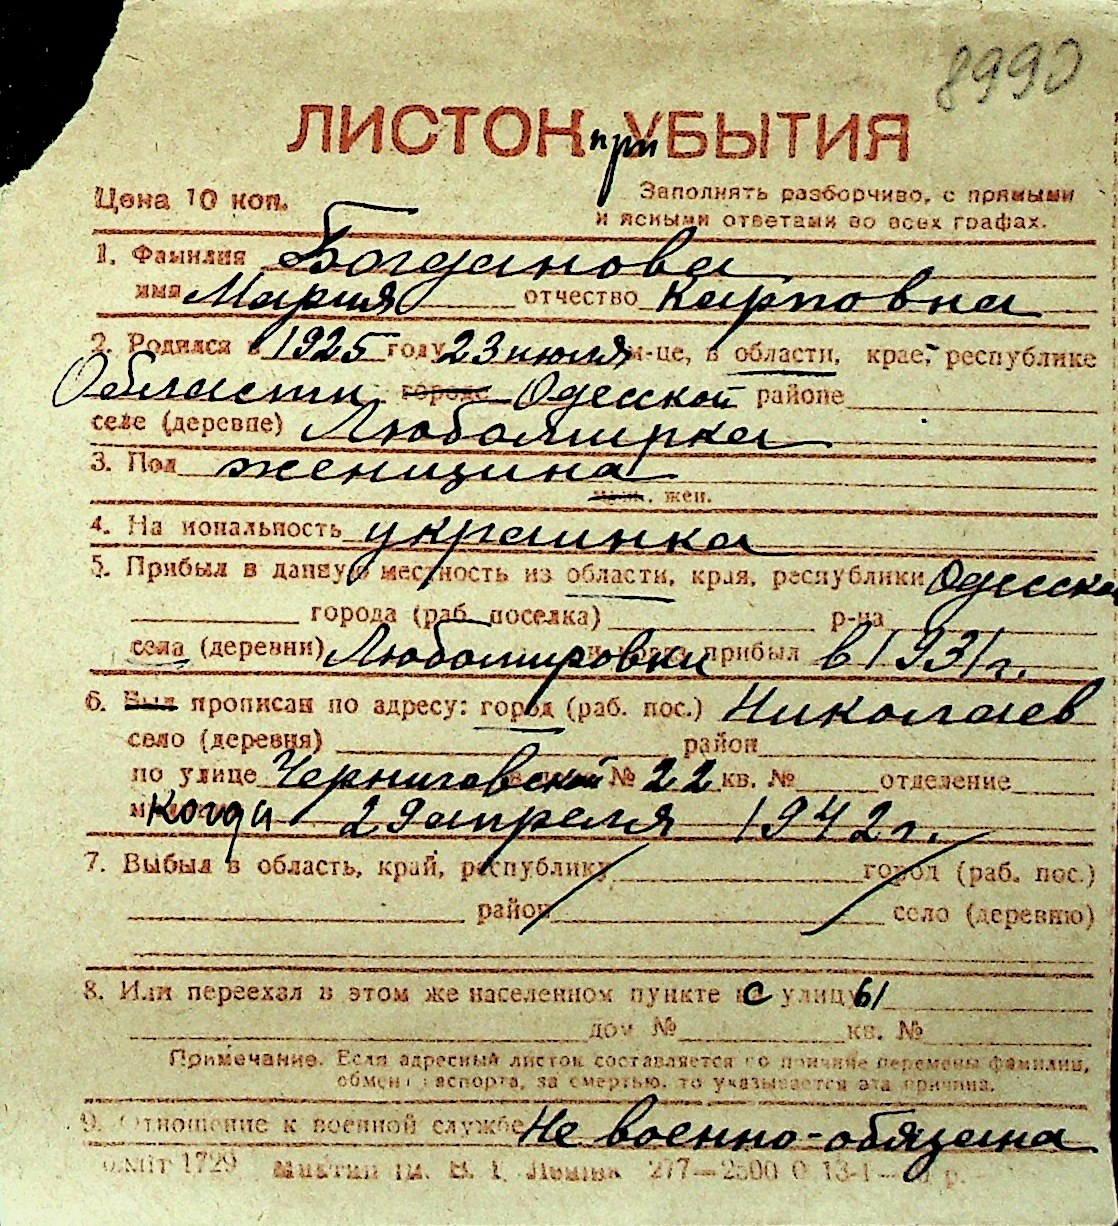 8990
ЛИСТОК при УБЫТИЯ
Цена 10 коп.
Заполнять разборчиво, с прямыми
и ясными ответами во всех графах.
1. Фамилия Богданова
имя Мария отчество Карповна
2. Родился в 1925 году 23 июля м-це, в области, крае, республике
Области городе Одесской районе
селе (деревне) Любомирка
3. Пол женщина
муж. жен.
4. На иональность украинка
5. Прибыл в данную местность из области, края, республики Одесской
города (раб. поселка) р-на
села (деревни) Любомировки прибыл в 1931 г.
6. Был прописан по адресу: город (раб. пос.) Николаев
село (деревня) район
по улице Черниговской № 22 кв. № отделение
Когда 29 апреля 1942 г.
7. Выбыл в область, край, республику город (раб. пос.)
район село (деревню)
8. Или переехал в этом же населенном пункте с улицы
дом № кв. №
Примечание. Если адресный листок составляется по причине перемены фамилии,
обмен паспорта, за смертью, то указывается эта причина.
9. Отношение к военной службе Не военно-обязана
1729 277—2500